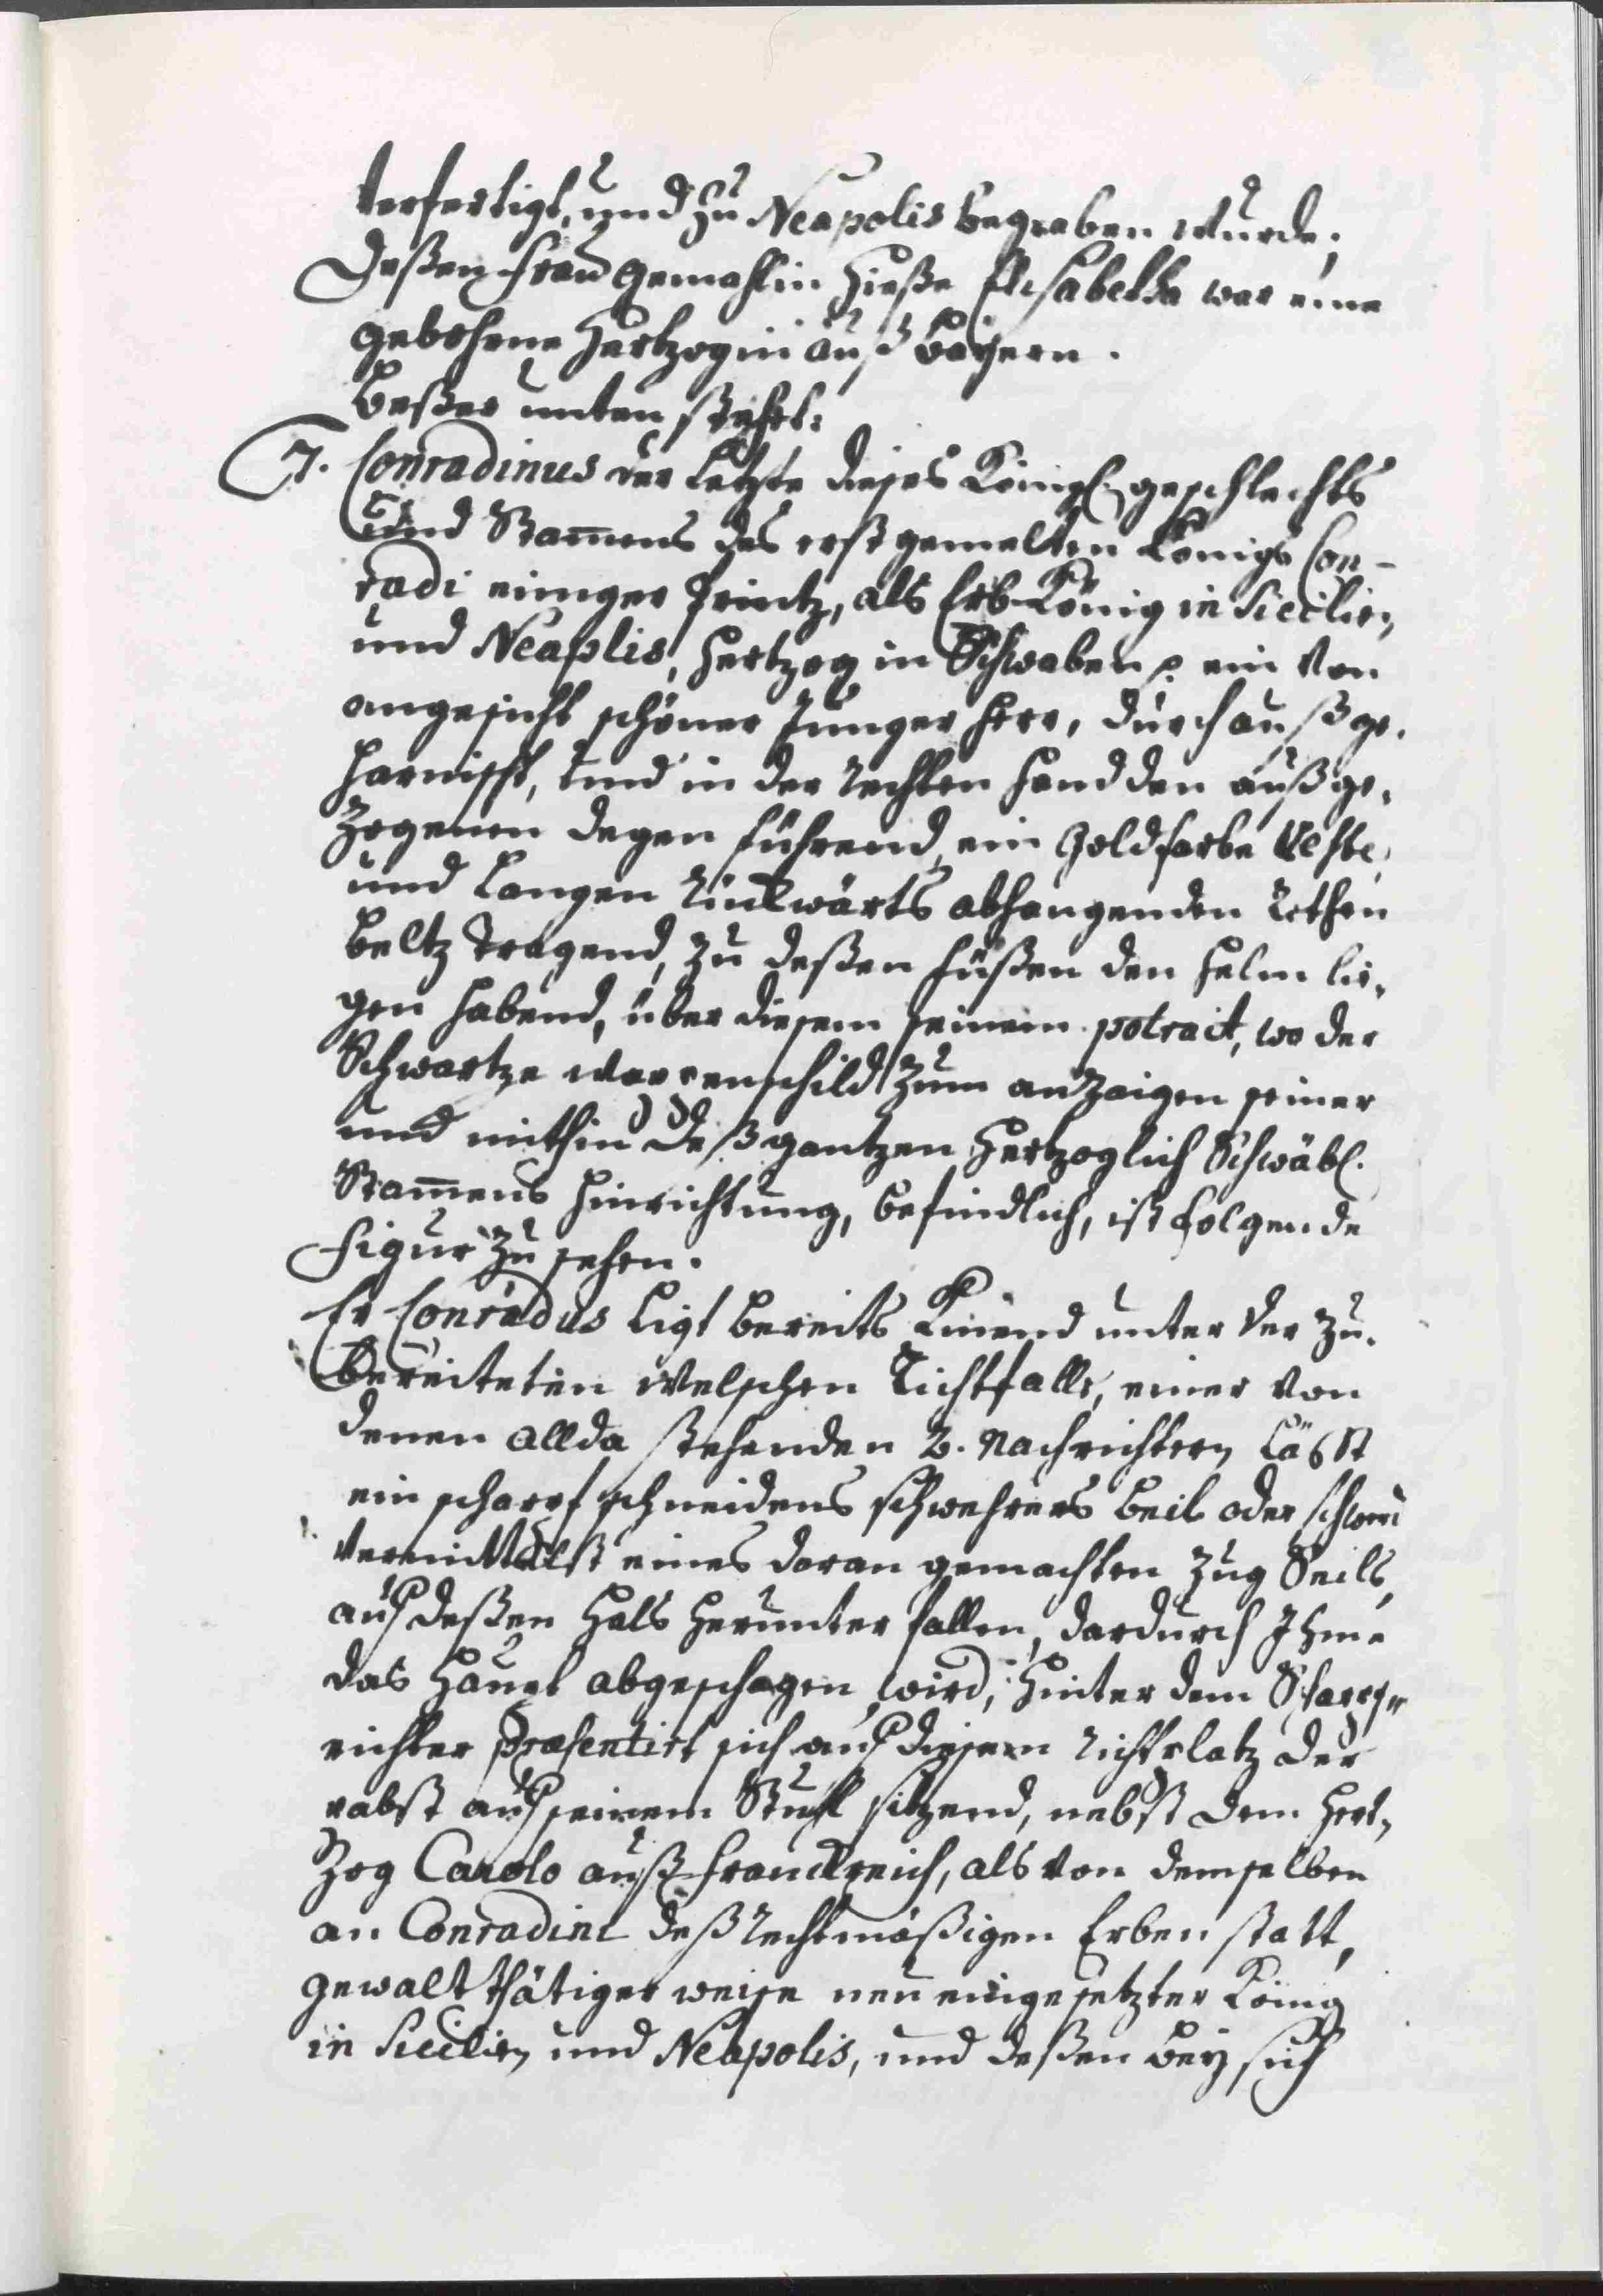 verfertigt, und zu Neapolis begraben wurde;
Deßen Frau Gemahlin hieße Elisabetha war eine
gebohrne Hertzogin auß Bayern.
Beßer unten stehet:
7. Conradinus der Letzte dieses Königl. geschlechts
und Stam̄ens des erst gemelten Königs Con-
radi einiger Printz, als Erb-König in Sicilien
und Neaplis, Hertzog in Schwaben ein von
angesicht schöner Junger Herr, durchauß ge-
harnischt, und in der rechten Hand den außge-
zogenen Degen führend, ein Goldfarbe Veste,
und Langen ruckwärts abhangenden rothen
Beltz tragend, zu deßen füßen den Helm lie-
gen habend, über diesem seinem potrait, wo der
Schwartze wappenschild zum anzaigen seiner
und mithin deß gantzen Hertzoglich Schwäbl.
Stam̄ens hinrichtung, befindlich, ist folgende
Figur zu sehen.
Er Conradus ligt bereits Kniend unter der zu-
bereiteten welschen Richtfalle, einer von
denen allda stehenden 2. Nachrichtern läßt
ein scharpf schneidens schwehrers Beil oder
vermittelst eines daran gemachten Zug Seils,
auf deßen Hals herunter fallen, dardurch Ihme
das Haupt abgeschagen wird; hinter dem Scharpf-
richter præsentirt sich auf diesem richtplatz der
pabst auf seinem Stuhl sitzend, nebst dem Hert-
zog Carolo auß Franckreich, als von demselben
an Conradini deß rechtmäßigen Erben statt,
gewaltthätiger weise neu eingesetzter König
in Sicilien und Neapolis, und deßen bey sich